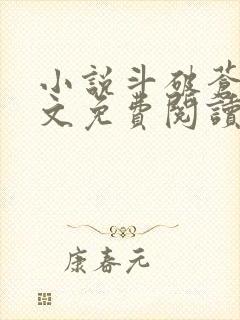 小說斗破蒼
文免費閱讀
康春元